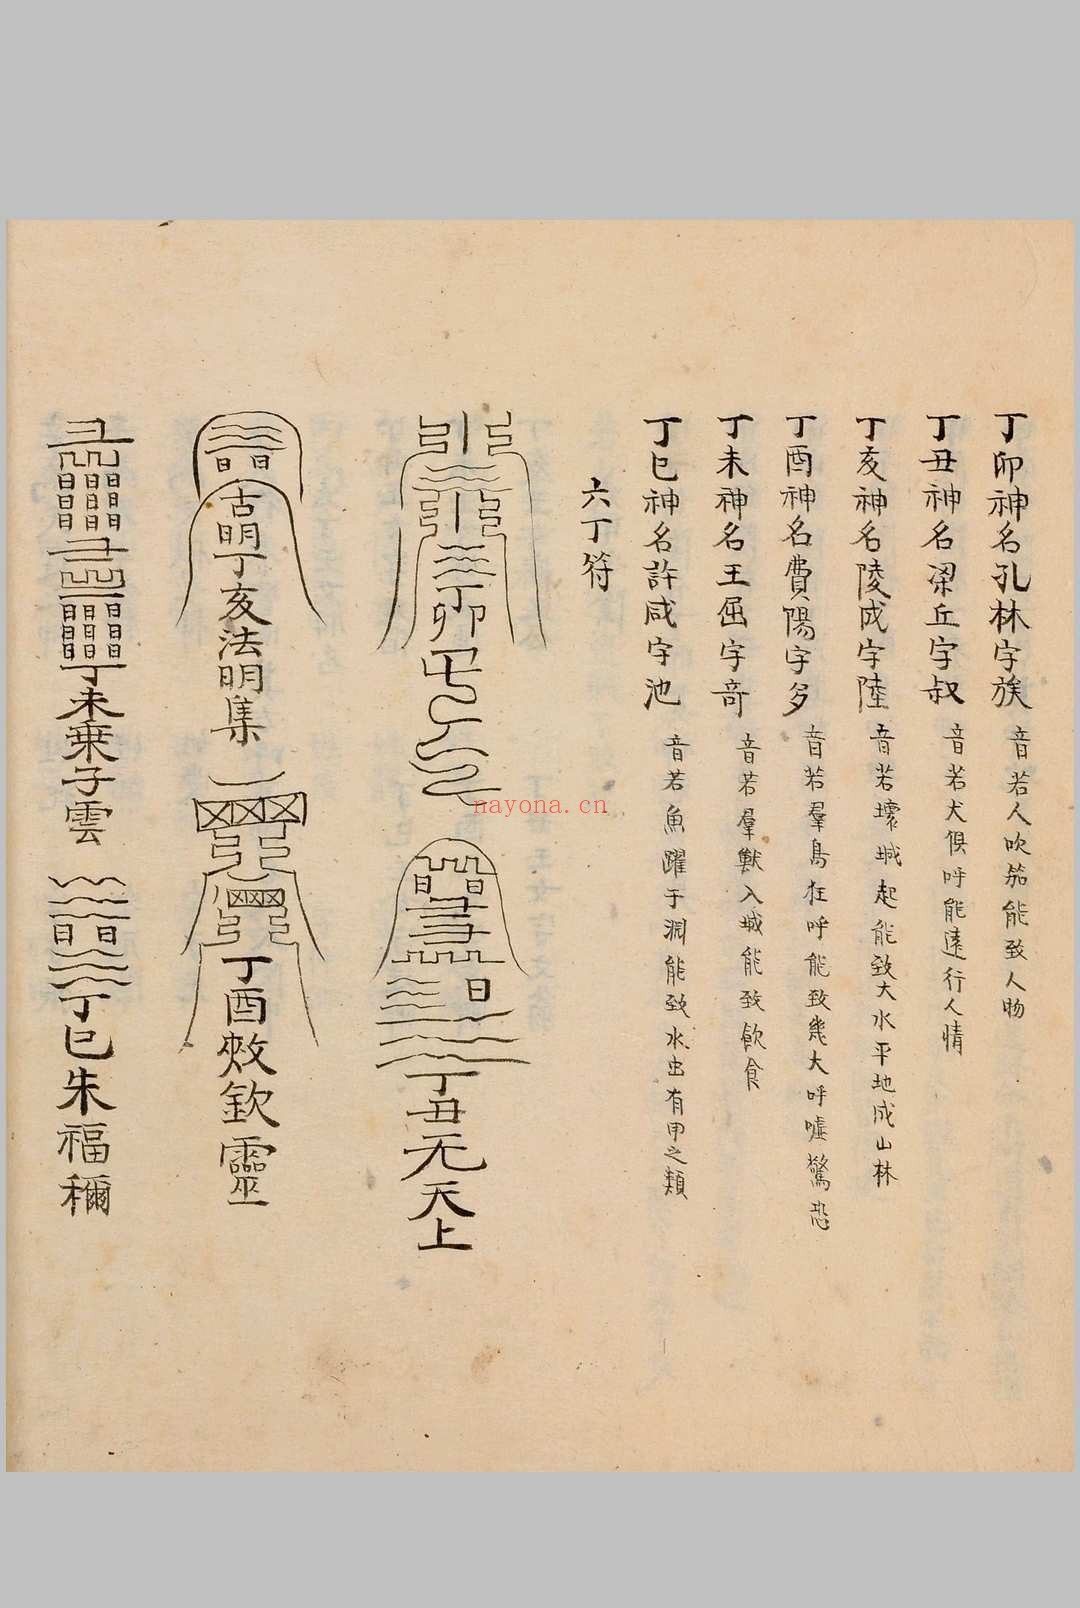 丁卯神名孔林字族 音若人吹笳能致人物
丁丑神名梁丘字叔 音若犬俱呼能遠行人情
丁亥神名陵成字陸 音若壞城起能致大水平地成山林
丁酉神名費陽字多 音若羣鳥狂呼能致幾大呼嘘驚恐
丁未神名王屈字奇 音若羣獸入城能致飲食
丁巳神名許咸字池 音若魚躍于淵能致水虫有甲之類
六丁符
丁卯
日日
日
丁丑无天上
日日
古明丁亥法明集
丁酉敇欽靈
丁未乗子雲
日日
丁巳朱福穪
nayona.cn